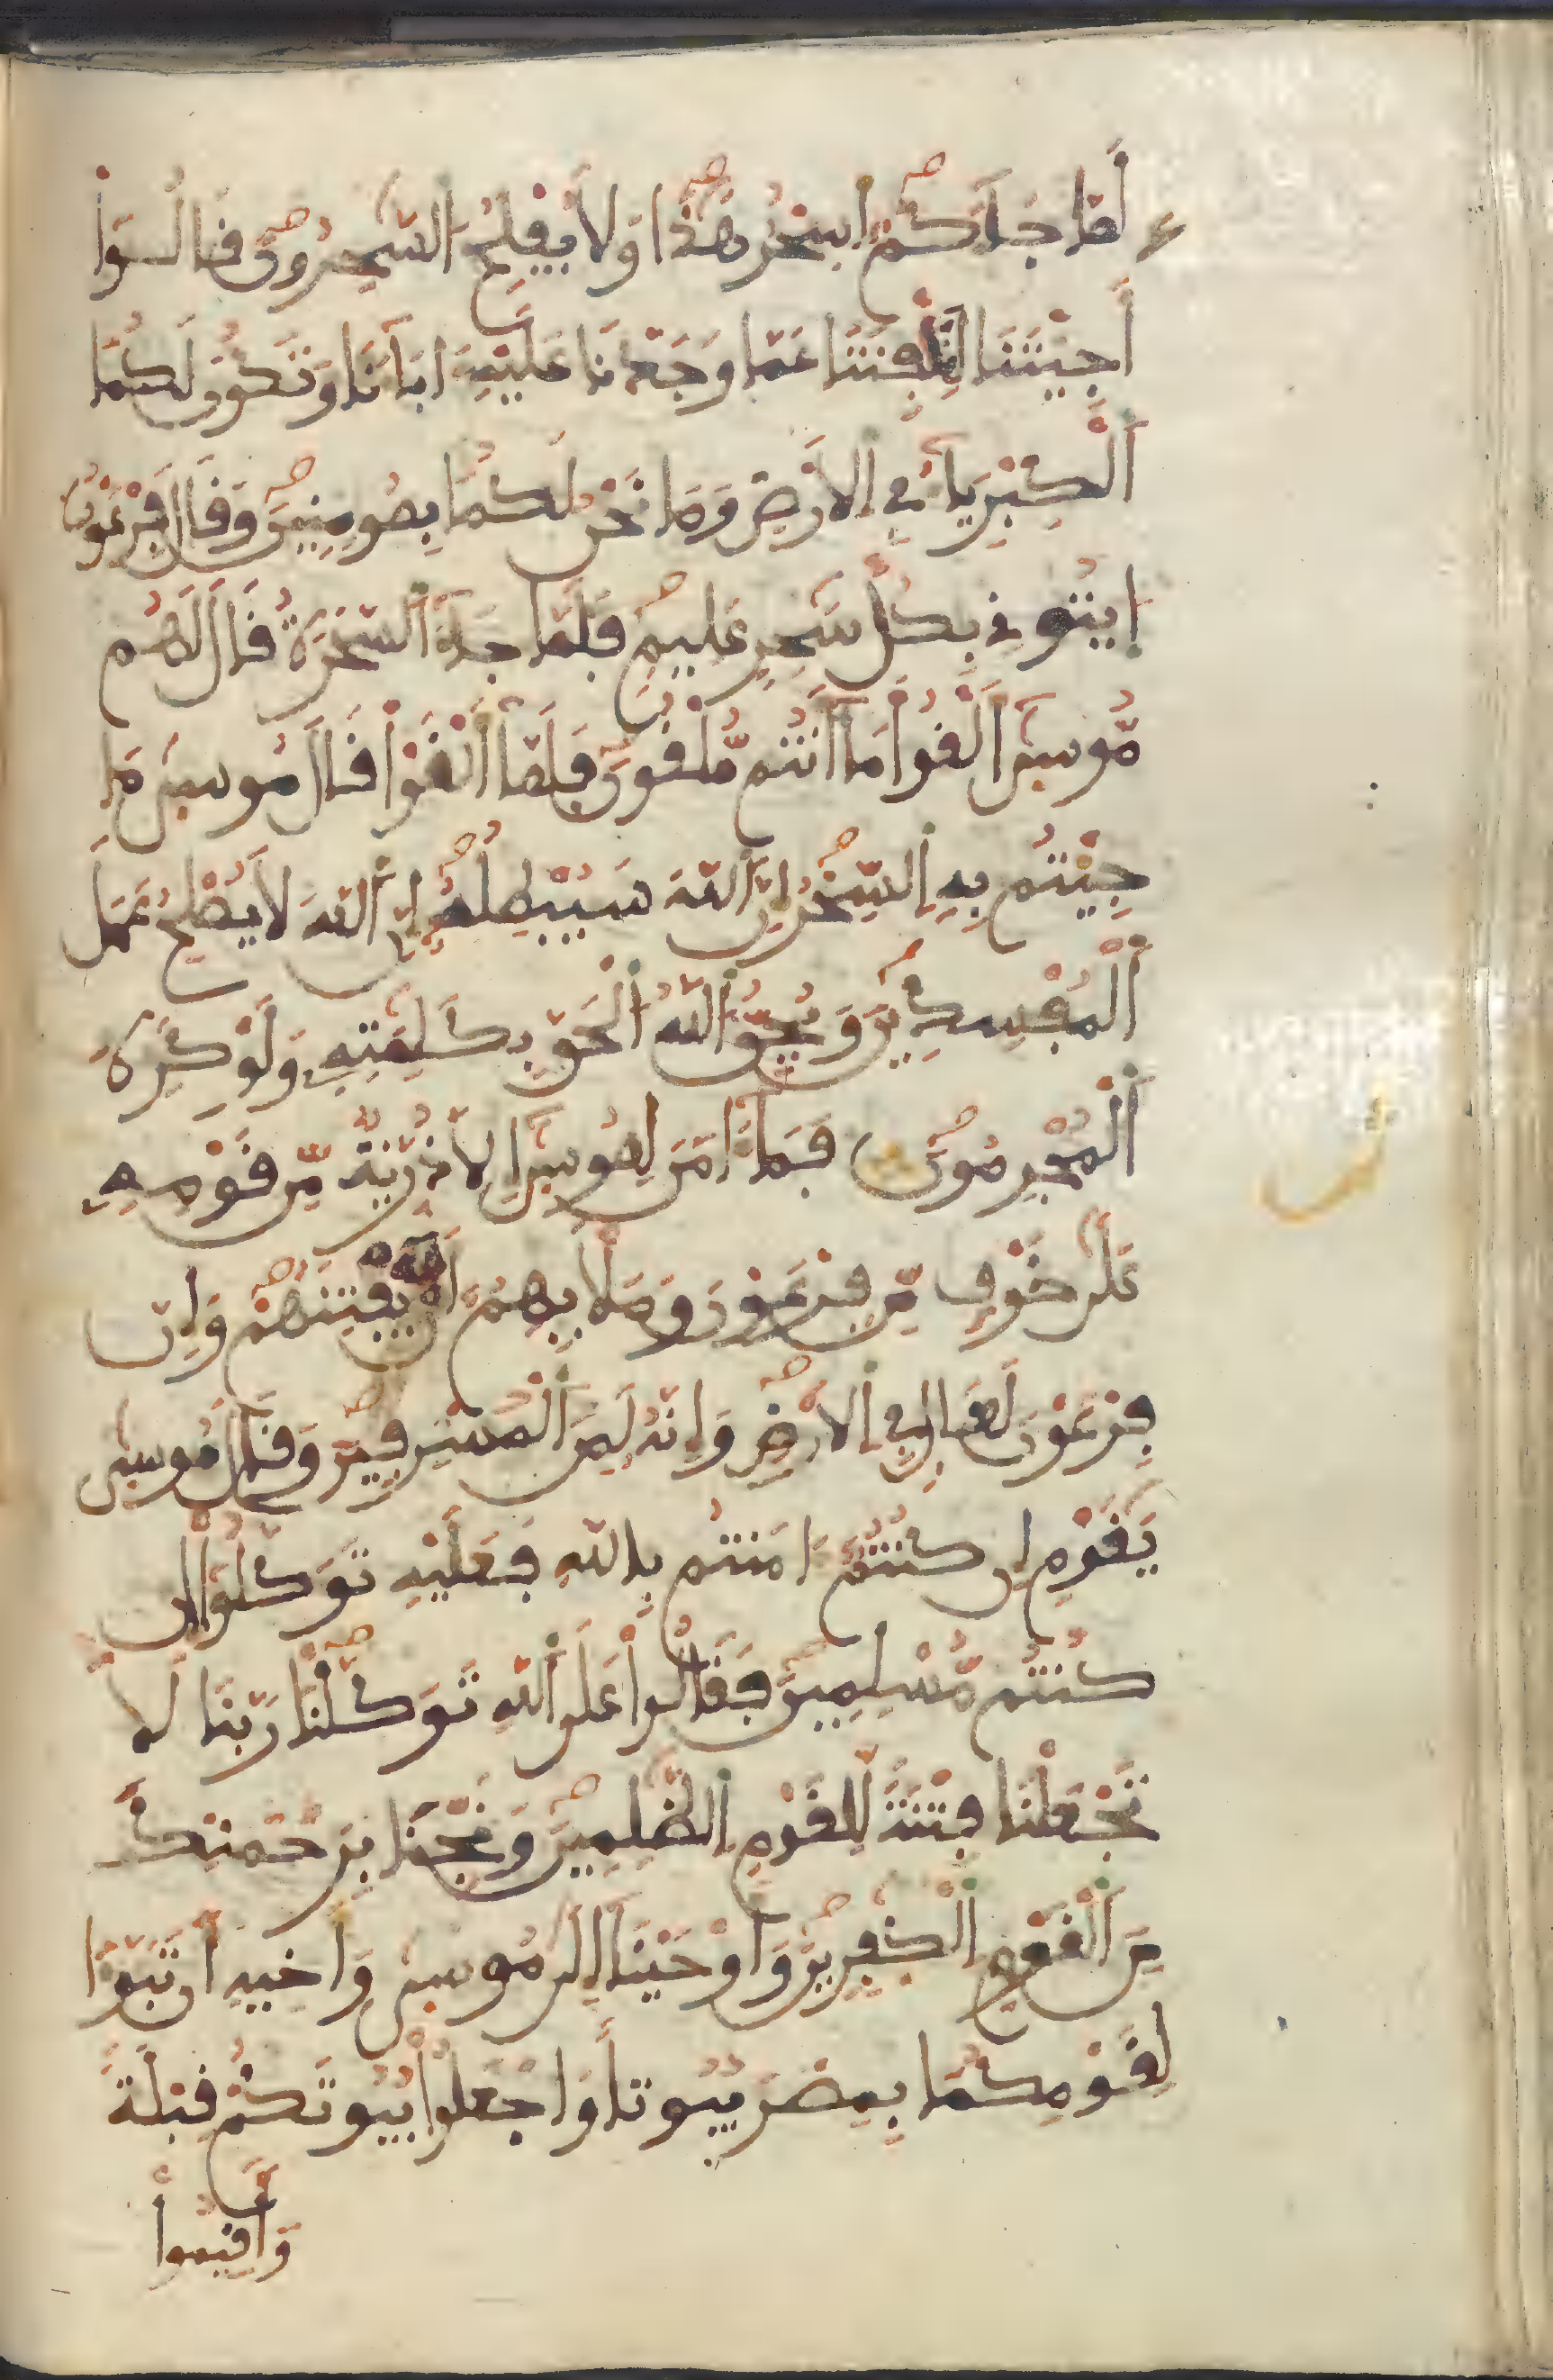 لَمَّا جَآءَكُمُۥٓ أَسِحْرٌ هَٰذَا وَلَا يُفْلِحُ السَّٰحِرُونَ قَالُوٓا
أَجِئْتَنَا لِتَلْفِتَنَا عَمَّا وَجَدْنَا عَلَيْهِ ءَابَآءَنَا وَتَكُونَ لَكُمَا
الْكِبْرِيَآءُ فِي الَارْضِ وَمَا نَحْنُ لَكُمَا بِمُومِنِينَ وَقَالَ فِرْعَوْنُ
ايتُونِي بِكُلِّ سَٰحِرٍ عَلِيمٍ فَلَمَّا جَآءَ السَّحَرَةُ قَالَ لَهُم
مُّوسَىٰٓ أَلْقُوا مَآ أَنتُم مُّلْقُونَ فَلَمَّآ أَلْقَوْا قَالَ مُوسَىٰ مَا
جِئْتُم بِهِ السِّحْرُ إِنَّ اللَّهَ سَيُبْطِلُهُۥٓ إِنَّ اللَّهَ لَا يُصْلِحُ عَمَلَ
الْمُفْسِدِينَ وَيُحِقُّ اللَّهُ الْحَقَّ بِكَلِمَٰتِهِۦ وَلَوْ كَرِهَ
الْمُجْرِمُونَ فَمَآ ءَامَنَ لِمُوسَىٰٓ إِلَّا ذُرِّيَّةٌ مِّن قَوْمِهِۦ
عَلَىٰ خَوْفٍ مِّن فِرْعَوْنَ وَمَلَإِيْهِمُۥٓ أَنْ يَّفْتِنَهُمْ وَإِنَّ
فِرْعَوْنَ لَعَالٍ فِي الَارْضِ وَإِنَّهُۥ لَمِنَ الْمُسْرِفِينَ وَقَالَ مُوسَىٰ
يَٰقَوْمِ إِن كُنتُمُۥٓ ءَامَنتُم بِاللَّهِ فَعَلَيْهِ تَوَكَّلُوٓا إِن
كُنتُم مُّسْلِمِينَ فَقَالُوا عَلَى اللَّهِ تَوَكَّلْنَا رَبَّنَا لَا
تَجْعَلْنَا فِتْنَةً لِّلْقَوْمِ الظَّٰلِمِينَ وَنَجِّنَا بِرَحْمَتِكَ
مِنَ الْقَوْمِ الْكَٰفِرِينَ وَأَوْحَيْنَآ إِلَىٰ مُوسَىٰ وَأَخِيهِ أَن تَبَوَّءَا
لِقَوْمِكُمَا بِمِصْرَ بُيُوتًا وَاجْعَلُوا بُيُوتَكُمْ قِبْلَةً
وَأَقِيمُوا